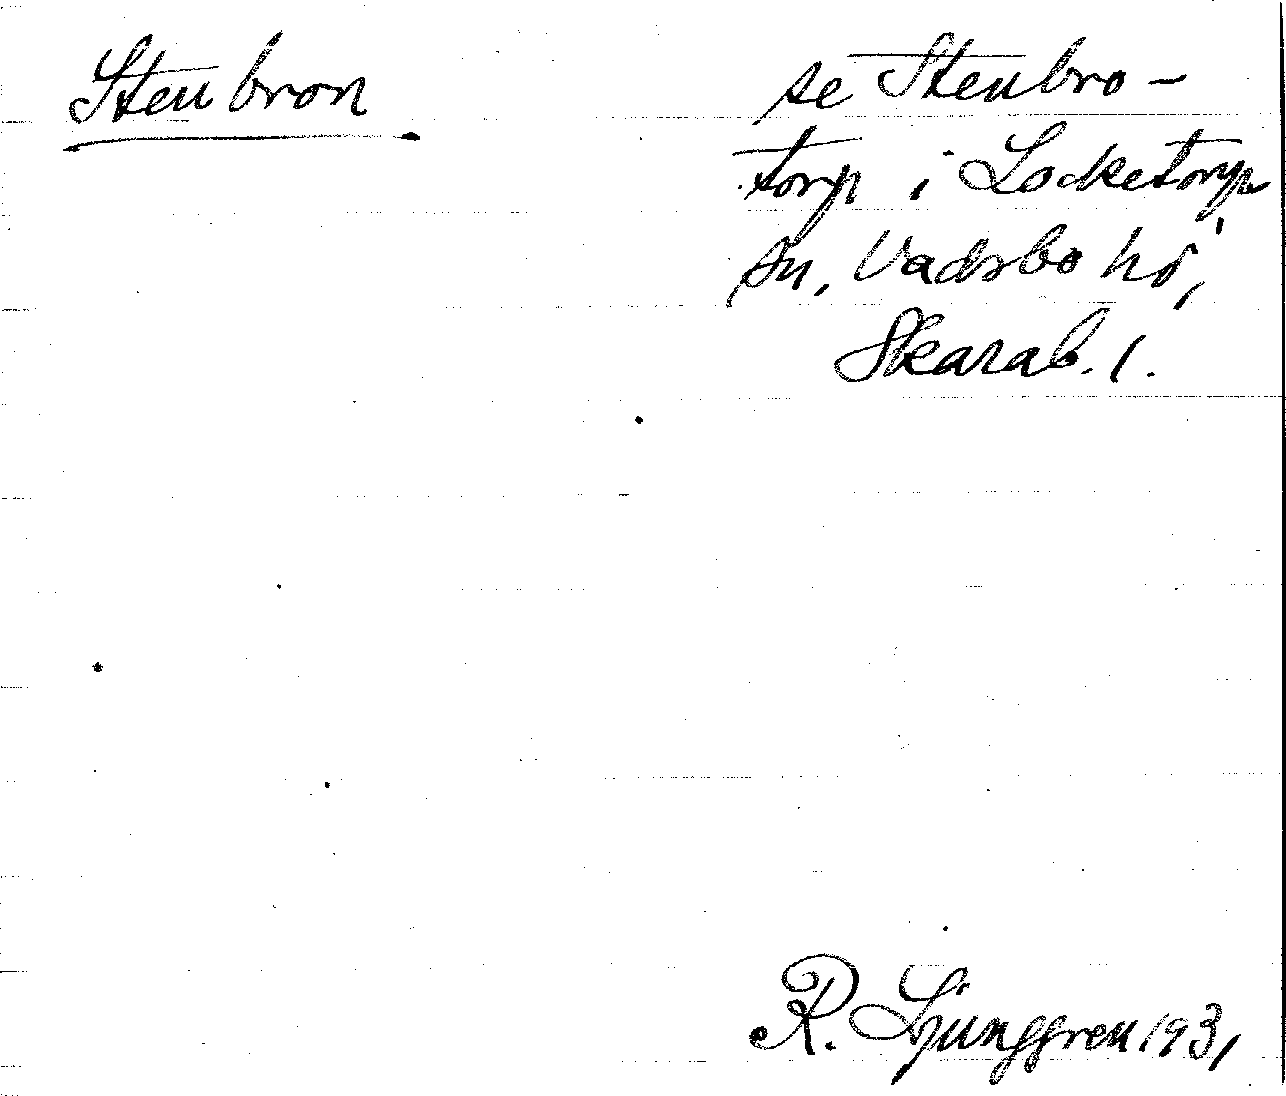 Stenbron
se Stenbro-
torp i Locketorp
sn, Vadsbo hd,
Skarab. l.
R. Ljunggren 1931